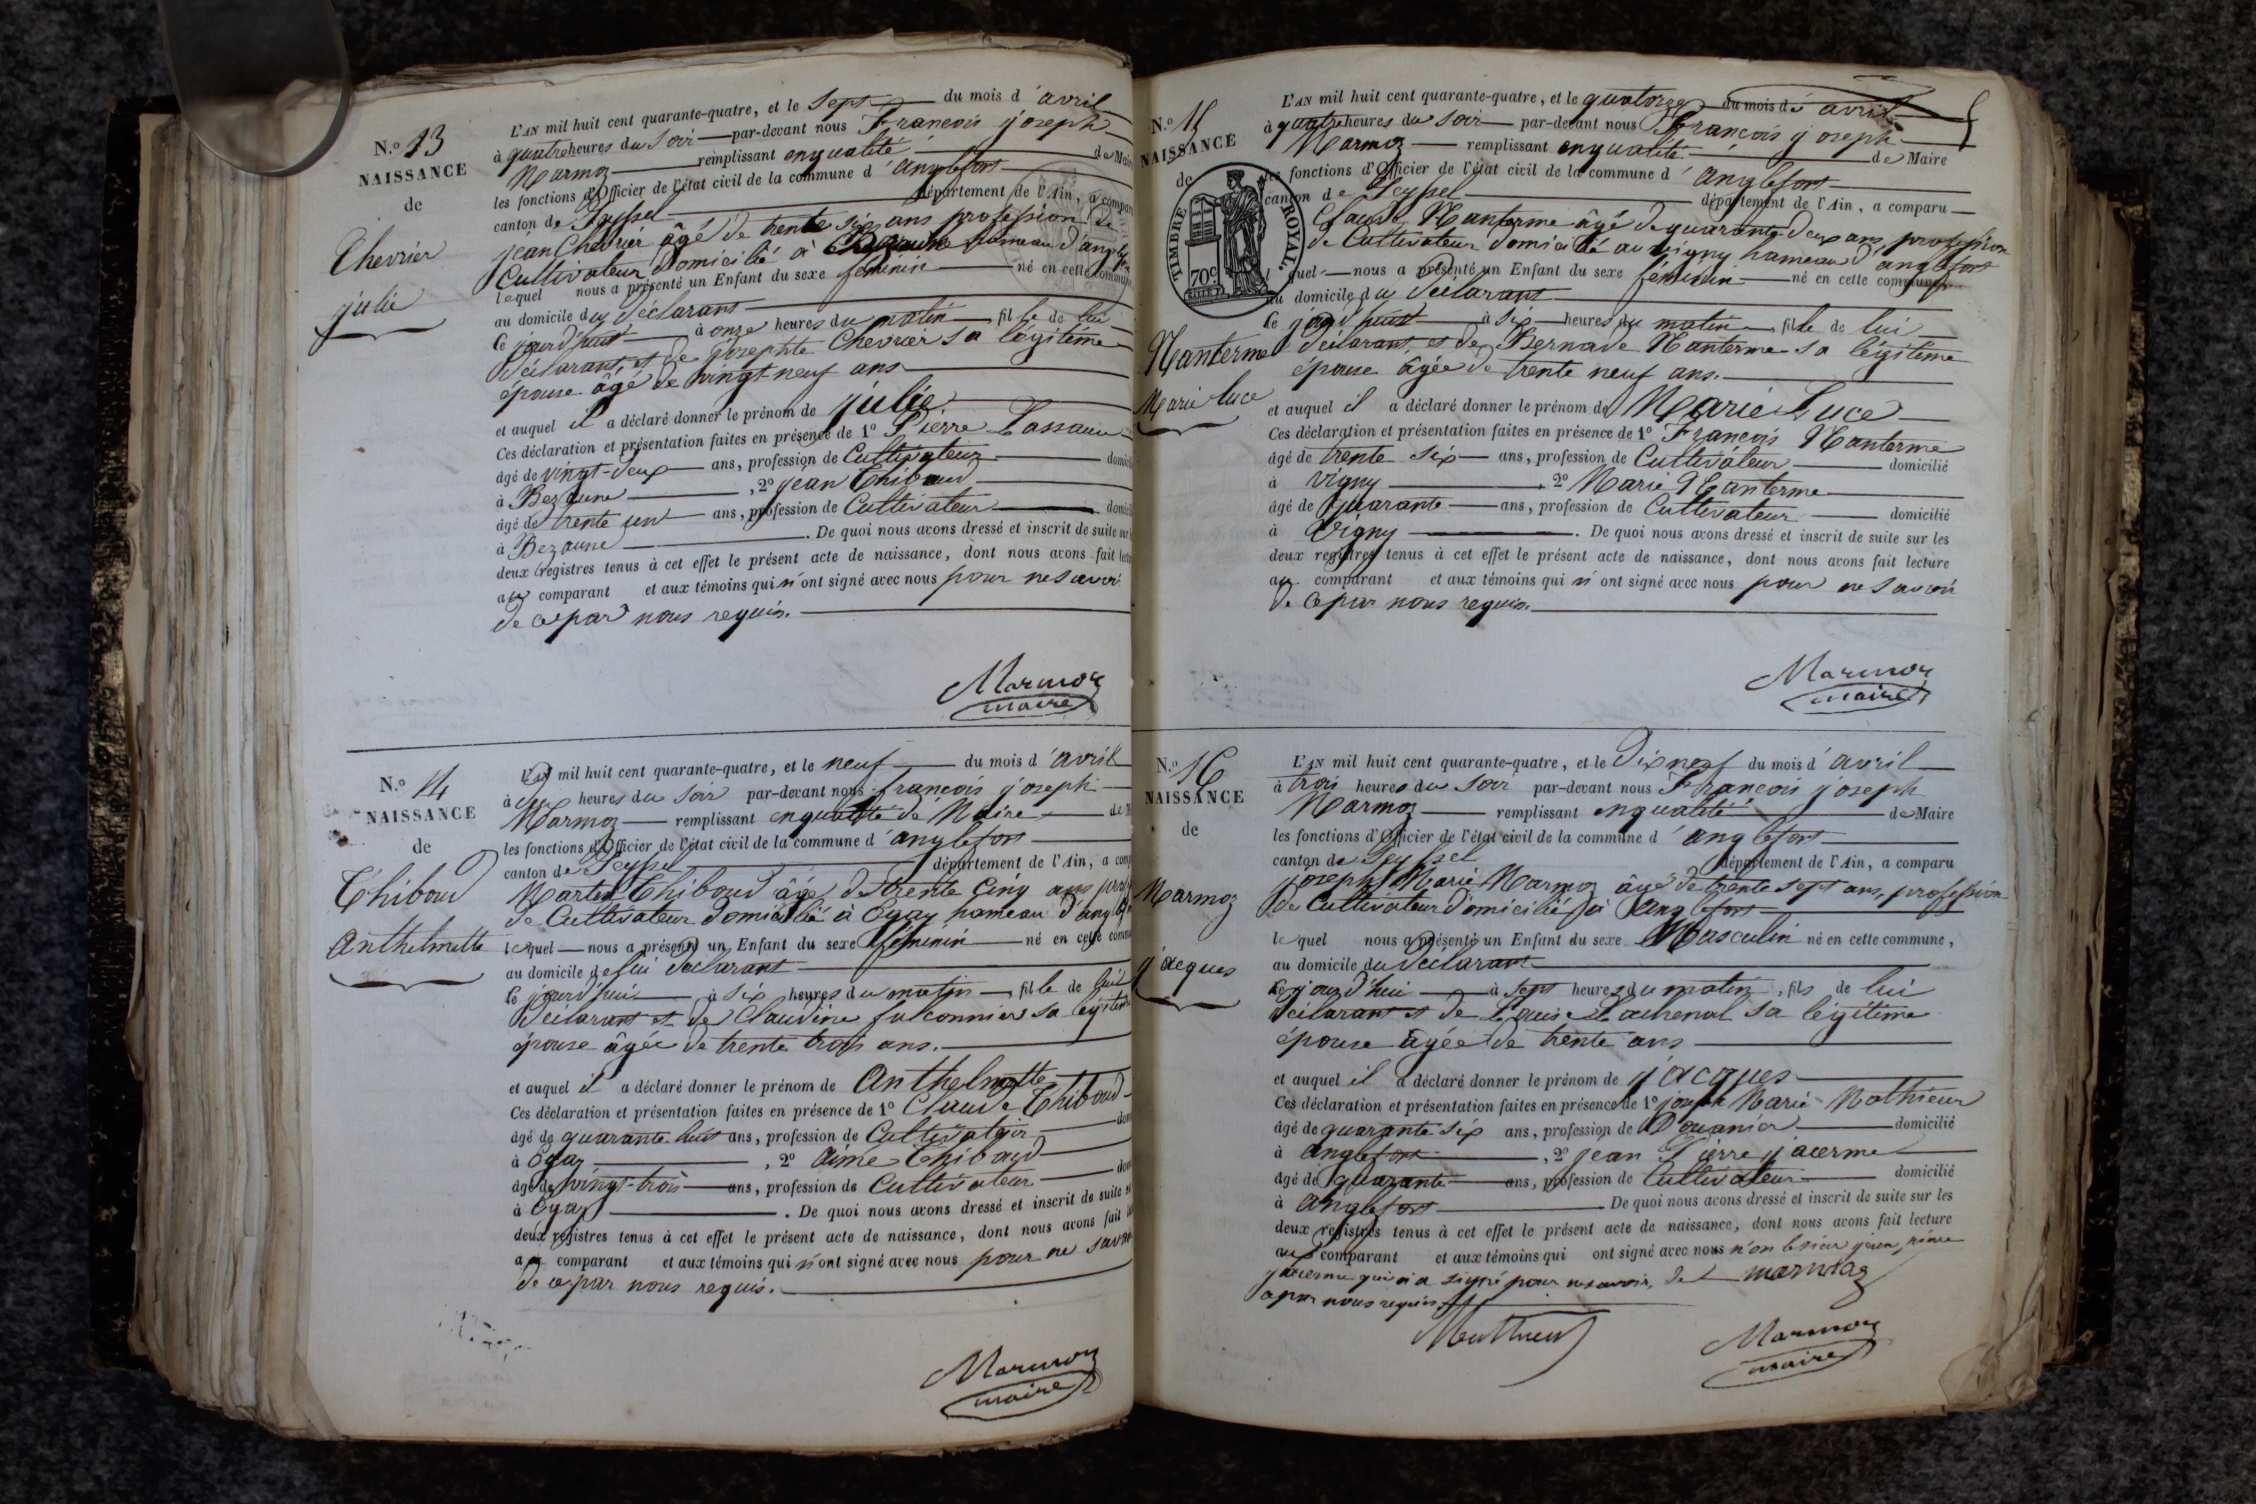 N.o 13
NAISSANCE
de
Chevrier
julie
L'AN mil huit cent quarante-quatre, et le sept du mois d'avril
à quatre heures du soir par-devant nous Francois joseph
Marmoz remplissant enqualité de Maire
les fonctions d'Officier de l'état civil de la commune d'anglefort
canton de Seyssel département de l'Ain, a comparu
jean Chevrier âgé de trente six ans profession de
Cultivateur domicilié à Bezaune hameau d'anglefort
lequel nous a présenté un Enfant du sexe féminin né en cette commune
au domicile du déclarant
ce jourd'huit à onze heures du matin fille de lui
déclarant et de josephte Chevrier sa légitime
épouse âgé de vingt-neuf ans
et auquel il a déclaré donner le prénom de julie
Ces déclaration et présentation faites en présence de 1o Pierre Lassaux
âgé de vingt-deux ans, profession de Cultivateur
à Bezaune , 2o jean Thiboud
âgé de trente un ans, profession de Cultivateur
à Bezaune . De quoi nous avons dressé et inscrit de suite sur
deux registres tenus à cet effet le présent acte de naissance, dont nous avons fait
au comparant et aux témoins qui n'ont signé avec nous pour ne savoir
de ce par nous requis.
Marmoz
maire
N.o 14
NAISSANCE
de
Thiboud
Anthelmette
L'AN mil huit cent quarante-quatre, et le neuf du mois d'avril
à deux heures du soir par-devant nous francois joseph
Marmoz remplissant enqualité de Maire
les fonctions d'Officier de l'état civil de la commune d'anglefort
canton de Seyssel département de l'Ain, a
Martin Thiboud âgé de trente cinq ans
de Cultivateur domicilié à Eyay hameau d'anglefort
lequel nous a présenté un Enfant du sexe féminin né en cette
au domicile de lui déclarant
ce jourd'hui à six heures du matin, fille de lui
déclarant et de Claudine falconnier sa légitime
épouse âgée de trente trois ans.
et auquel il a déclaré donner le prénom de Anthelmette
Ces déclaration et présentation faites en présence de 1o Claude Thiboud
âgé de quarante huit ans, profession de Cultivateur
à Eyay , 2o aimé Thiboud
âgé de vingt-trois ans, profession de Cultivateur
à Eyay . De quoi nous avons dressé et inscrit de suite
deux registres tenus à cet effet le présent acte de naissance, dont nous avons fait
au comparant et aux témoins qui n'ont signé avec nous pour ne savoir
de ce par nous requis.
Marmoz
maire
N.o 15
NAISSANCE
de
TIMBRE ROYAL
70c
Nanterme
Marie Luce
L'AN mil huit cent quarante-quatre, et le quatorze du mois d'avril
à quatre heures du soir par-devant nous Francois joseph
Marmoz remplissant enqualité de Maire
les fonctions d'Officier de l'état civil de la commune d'anglefort
canton de Seyssel département de l'Ain, a comparu
Claude Nanterme âgé de quarante deux ans, profession
de Cultivateur domicilié au vigny hameau d'anglefort
lequel nous a présenté un Enfant du sexe féminin né en cette commune
au domicile du déclarant
ce jourd'huit à six heures du matin fille de lui
déclarant, et de Bernarde Nanterme sa légitime
épouse âgée de trente neuf ans.
et auquel il a déclaré donner le prénom de Marie Luce
Ces déclaration et présentation faites en présence de 1o Francois Nanterme
âgé de trente six ans, profession de Cultivateur domicilié
à vigny , 2o Marie Nanterme
âgé de quarante ans, profession de Cultivateur domicilié
à Vigny . De quoi nous avons dressé et inscrit de suite sur les
deux registres tenus à cet effet le présent acte de naissance, dont nous avons fait lecture
au comparant et aux témoins qui n'ont signé avec nous pour ne savoir
de ce par nous requis.
Marmoz
maire
N.o 16
NAISSANCE
de
Marmoz
jacques
L'AN mil huit cent quarante-quatre, et le dix neuf du mois d'avril
à trois heures du soir par-devant nous Francois joseph
Marmoz remplissant enqualité de Maire
les fonctions d'Officier de l'état civil de la commune d'anglefort
canton de Seyssel département de l'Ain, a comparu
joseph Marie Marmoz âgé de trente sept ans, profession
de Cultivateur domicilié à anglefort
lequel nous a présenté un Enfant du sexe Masculin né en cette commune,
au domicile du déclarant
ce jourd'hui à sept heures du matin, fils de lui
déclarant et de Louise Lachenal sa légitime
épouse âgée de trente ans
et auquel il a déclaré donner le prénom de jacques
Ces déclaration et présentation faites en présence de 1o joseph Marie Mathieux
âgé de quarante six ans, profession de Douanier domicilié
à anglefort , 2o jean Pierre jacerme
âgé de quarante ans, profession de Cultivateur domicilié
à anglefort De quoi nous avons dressé et inscrit de suite sur les
deux registres tenus à cet effet le présent acte de naissance, dont nous avons fait lecture
au comparant et aux témoins qui ont signé avec nous non le sieur jean pierre
jacerme qui n'a signé pour ne savoir de marmoz
ce par nous requis
Mathieux
Marmoz
maire